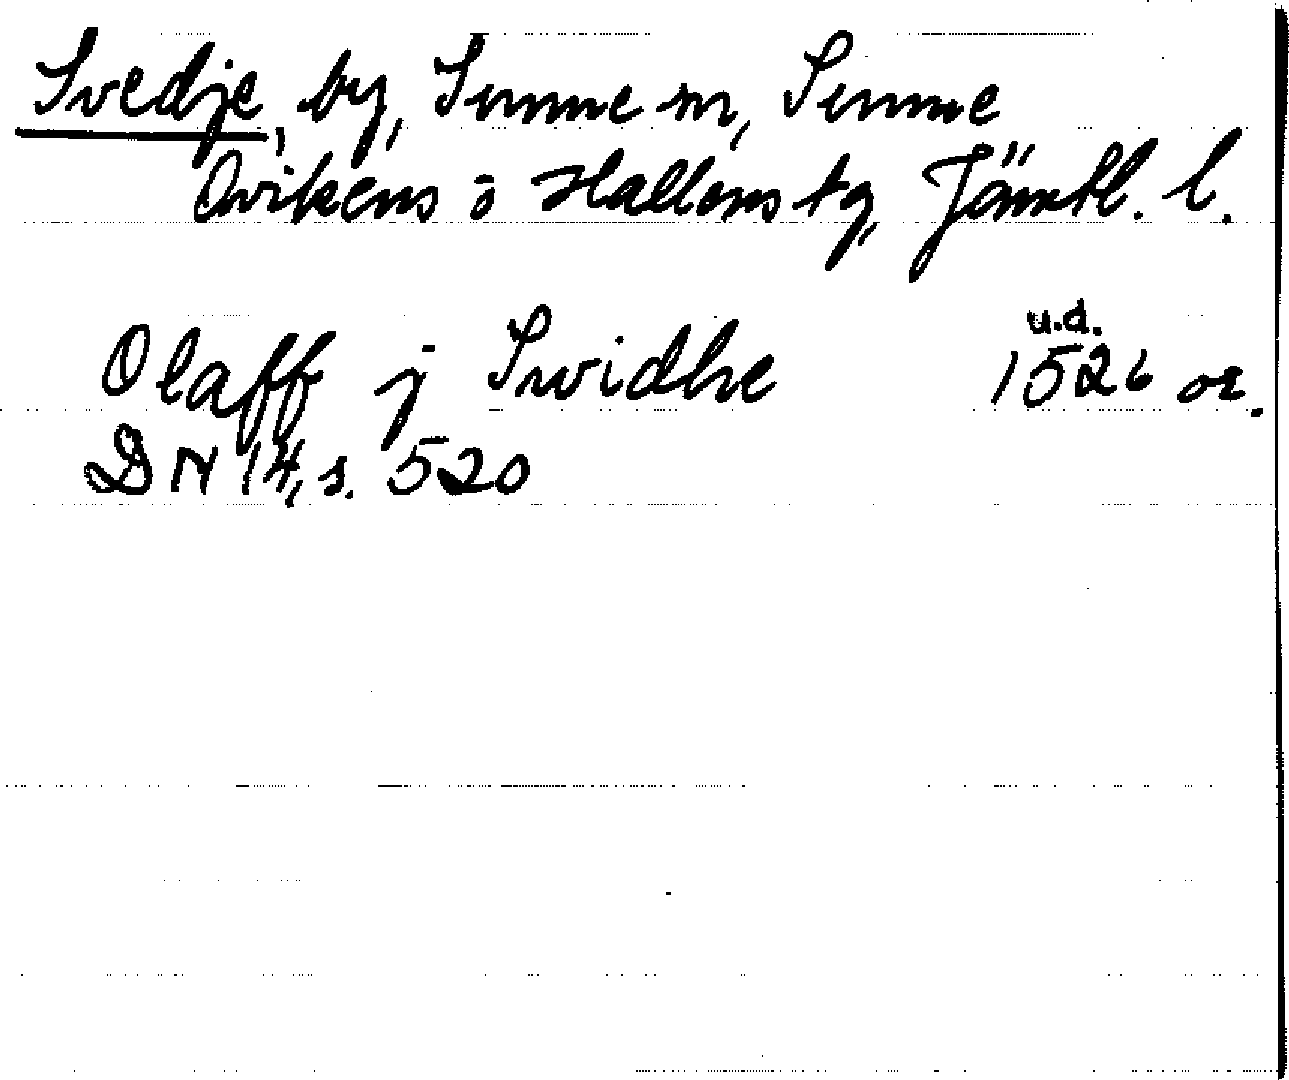 Svedje, by, Sunne sn, Sunne
Ovikens o Hallens tg, Jämtl. l.
Olaff j Swidhe u.d. 1526 or.
DN 14, s. 520